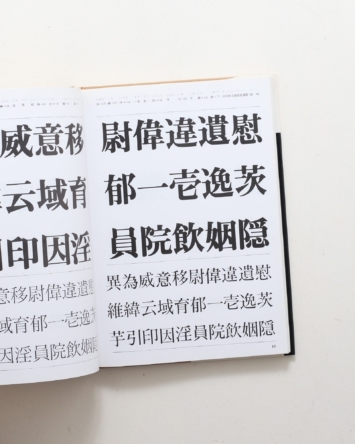 威意移
云域育
印因淫
意移尉偉違遺
域育郁一壱逸
因淫員院飲姻
尉偉違遺慰
郁一壱逸茨
員院飲姻隠
異為威意移尉偉違遺慰
維緯云域育郁一壱逸茨
芋引印因淫員院飲姻隠